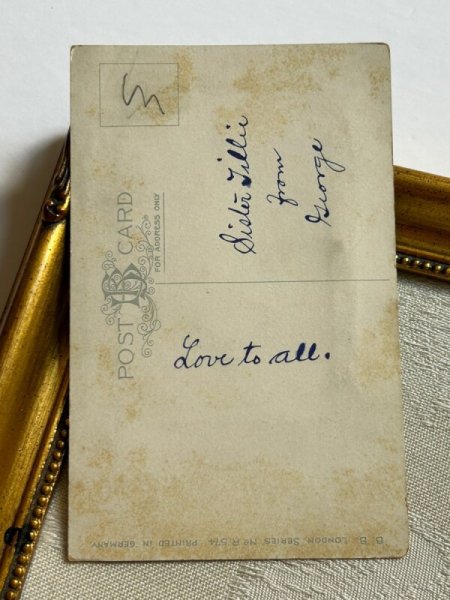 POST CARD
FOR ADDRESS ONLY
Sister Tillie
from
George
Love to all.
B. B. LONDON SERIES No R 574. PRINTED IN GERMANY